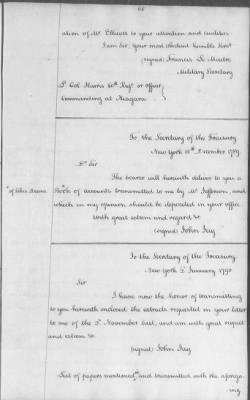 ation of Mr. Elliotts to your attention and civilities
I am Sir, Your most obedient humble Servt
(signed) Francis Le Maistre
Military Secretary
Lt Col Harris 60th Regt or officer
commanding at Niagara
To the Secretary of the Treasury
New York 10th December 1789
Dr Sir
The bearer will herewith deliver to you a
Book of accounts transmitted to me by Mr Jefferson, and
which in my opinion should be deposited in your office
With great esteem and regard &c
(signed) John Jay
* of Silas Deane
To the Secretary of the Treasury
New York 2d January 1790
Sir
I have now the honor of transmitting
to you herewith enclosed the extracts requested in your letter
to me of the 2d November last, and am with great respect
and esteem &c
(signed) John Jay
List of papers mentioned, and transmitted with the aforego-
ing